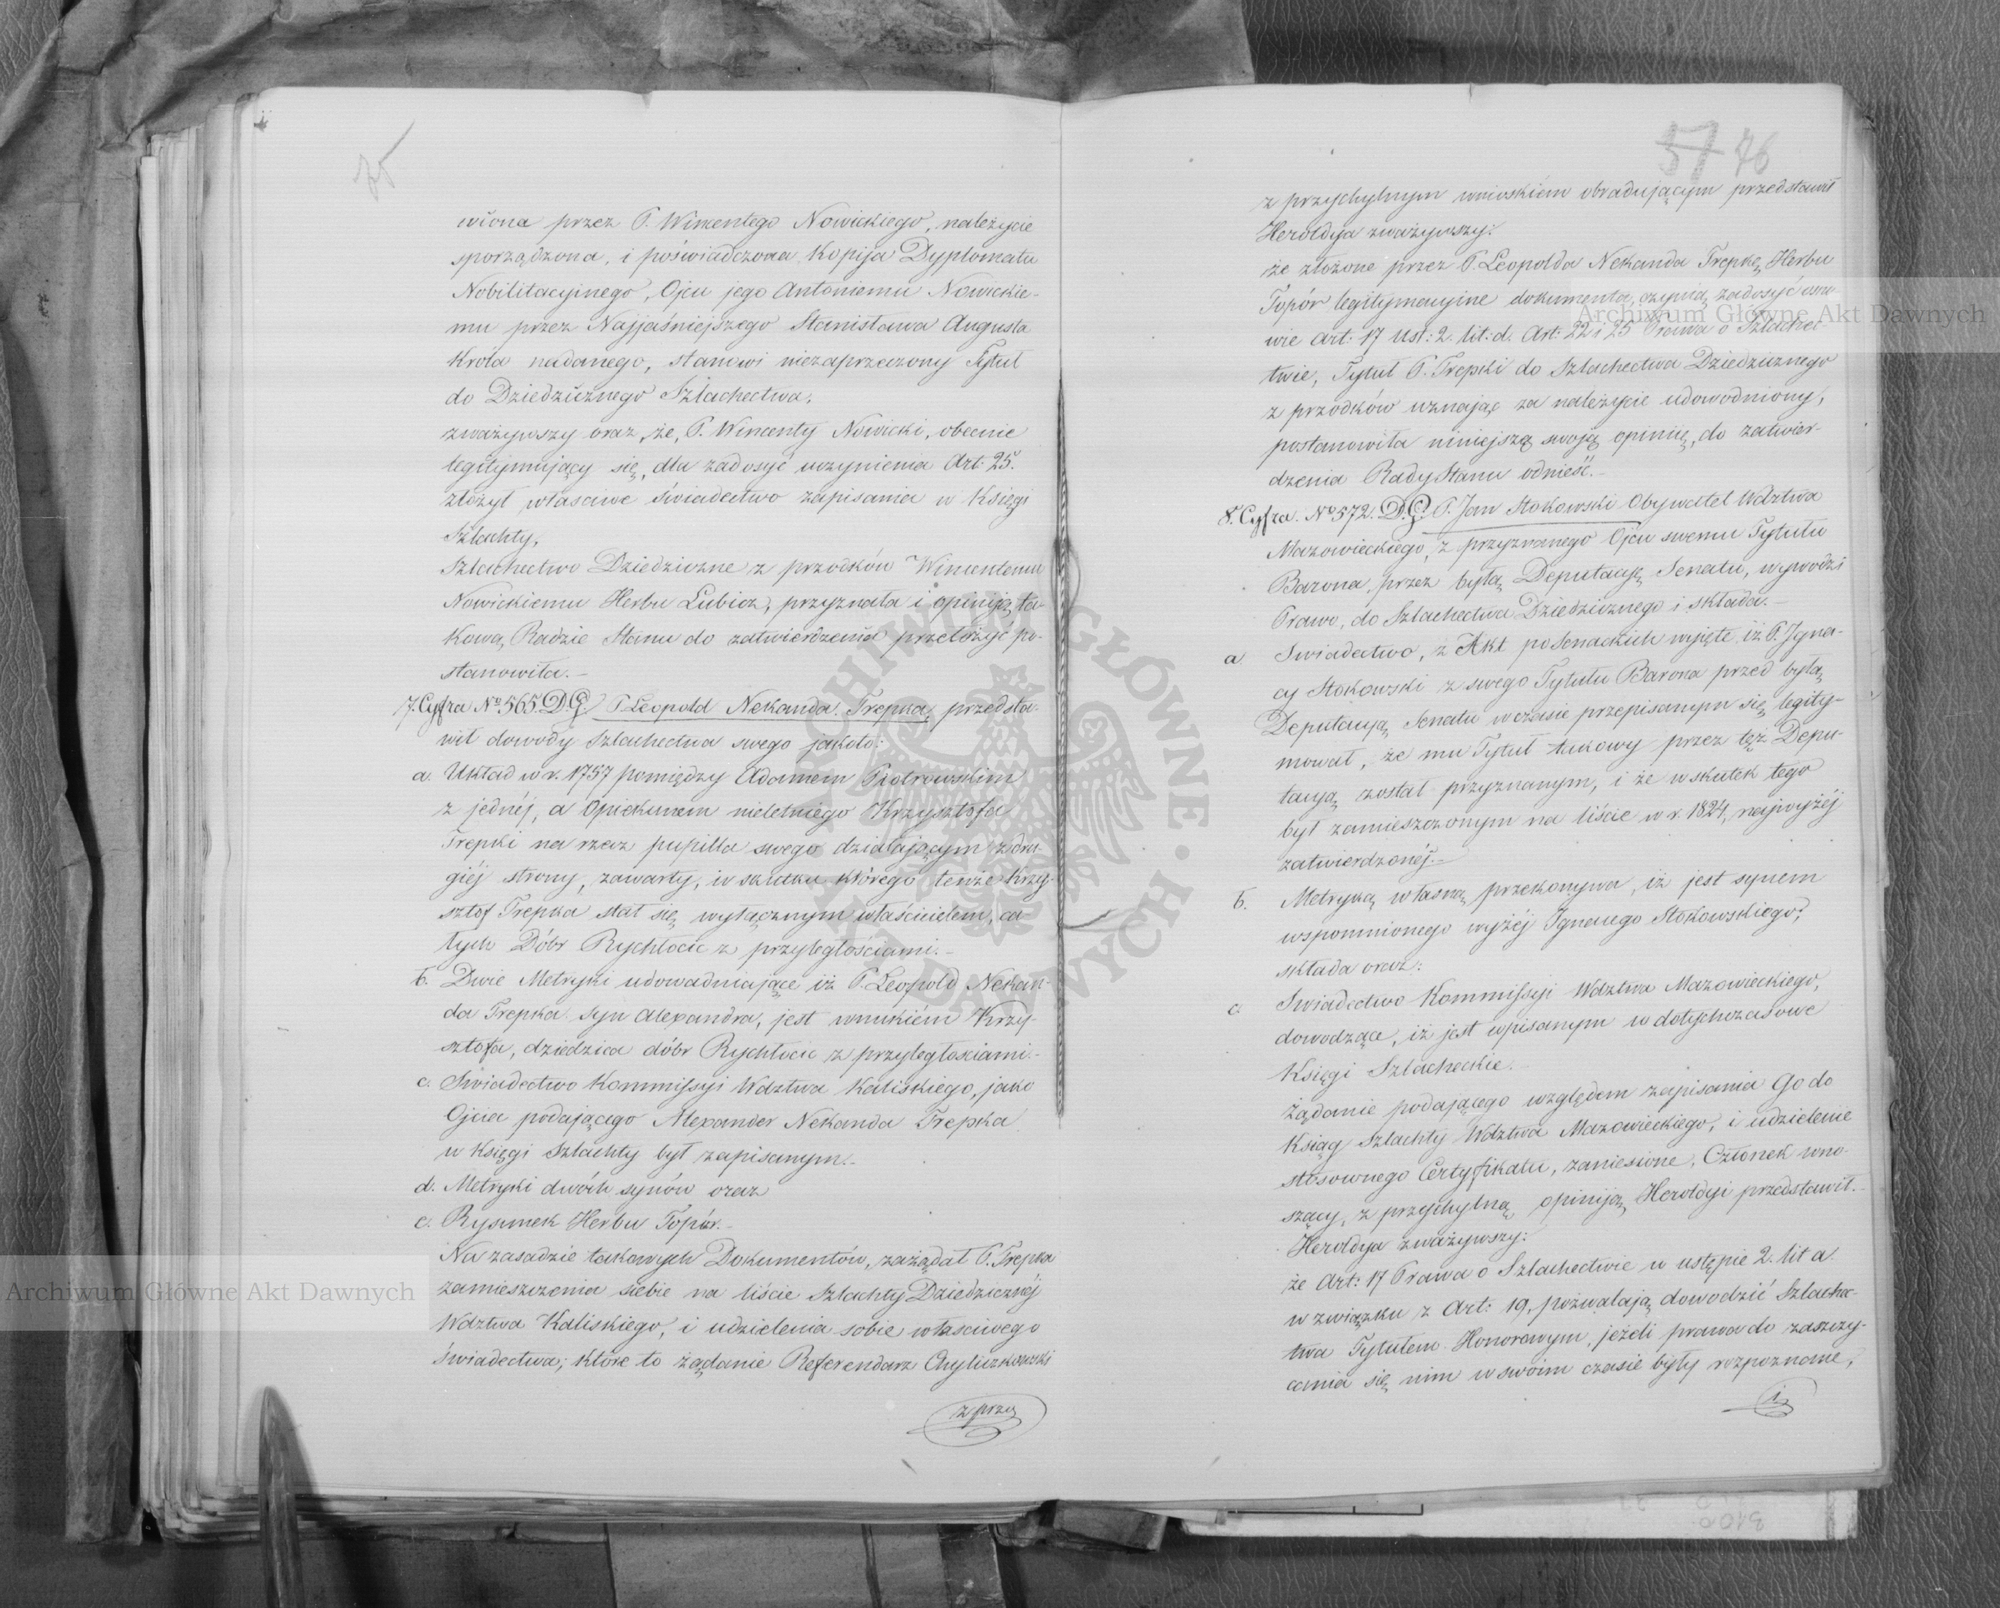 75
wiona przez P. Wincentego Nowickiego, należycie
sporządzona, i poświadczona Kopija Dyplomatu
Nobilitacyjnego, Ojcu jego Antoniemu Nowickie-
mu przez Najjaśniejszego Stanisława Augusta
Króla nadanego, stanowi niezaprzeczony Tytuł
do Dziedzicznego Szlachectwa,
zważywszy oraz, że, P. Wincenty Nowicki, obecnie
legitymujący się, dla zadosyć uczynienia Art: 25.
złożył właściwe świadectwo zapisania w Księgi
Szlachty,
Szlachectwo Dziedziczne z przodków Wincentemu
Nowickiemu Herbu Lubicz, przyznała i opiniją ta-
kową, Radzie Stanu do zatwierdzenia przełożyć po-
stanowiła.-
7. Cyfra No 565. D.G. P. Leopold Nekanda Trepka, przedsta-
wił dowody Szlachectwa swego jakoto:
a. Układ w r. 1757 pomiędzy Adamem Piotrowskim
z jednéj, a Opiekunem nieletniego Krzysztofa
Trepki na rzecz pupilla swego działającym z dru-
giéj strony, zawarty, i w skutku którego tenże Krzy-
sztof Trepka stał się wyłącznym właścicielem, ca-
łych Dóbr Rychłocic z przyległościami.-
b. Dwie Metryki udowadniające iż P. Leopold Nekan-
da Trepka syn Alexandra, jest wnukiem Krzy-
sztofa, dziedzica dóbr Rychłocic z przyległościami.-
c. Świadectwo Kommissyi Wdztwa Kaliskiego, jako
Ojciec podającego Alexander Nekanda Trepka
w Księgi Szlachty był zapisanym.-
d. Metryki dwóch synów oraz
e. Rysunek Herbu Topór.-
Na zasadzie takowych Dokumentów, zażądał P. Trepka
zamieszczenia siebie na liście Szlachty Dziedzicznéj
Wdztwa Kaliskiego, i udzielenia sobie właściwego
świadectwa; które to żądanie Referendarz Chyliczkowski
z przy
57 76
z przychylnym wnioskiem obradującym przedstawił
Heroldyja zważywszy:
że złożone przez P. Leopolda Nekanda Trepkę Herbu
Topór legitymacyjne dokumenta, czynią zadosyć osno-
wie Art: 17 Ust: 2. lit: d. Art: 22 i 25 Prawa o Szlachec-
twie, Tytuł P. Trepki do Szlachectwa Dziedzicznego
z przodków uznając za należycie udowodniony,
postanowiła niniejszą swoją opinię, do zatwier-
dzenia Rady Stanu odnieść.-
8. Cyfra. No 572. D.G. P. Jan Stokowski Obywatel Wdztwa
Mazowieckiego, z przyznanego Ojcu swemu Tytułu
Barona przez byłą Deputacyę Senatu, wywodzi
Prawo, do Szlachectwa Dziedzicznego i składa.-
a Świadectwo, z Akt po Senackich wyjęte iż P. Igna-
cy Stokowski z swego Tytułu Barona przed byłą
Deputacyą Senatu w czasie przepisanym się legity-
mował, że mu Tytuł takowy przez tęż Depu-
tacyą został przyznanym, i że w skutek tego
był zamieszczonym na liście w r. 1824, najwyżéj
zatwierdzonéj.-
b. Metryką własną przekonywa, iż jest synem
wspomnionego wyżéj Ignacego Stokowskiego;
składa oraz:
c. Świadectwo Kommissyi Wdztwa Mazowieckiego,
dowodzące, iż jest wpisanym w dotychczasowe
Księgi Szlacheckie.-
Żądanie podającego względem zapisania Go do
Ksiąg Szlachty Wdztwa Mazowieckiego, i udzielenie
stosownego Certyfikatu, zaniesione, Członek wno-
szący, z przychylną opiniją Heroldyi przedstawił.-
Heroldya zważywszy:
że Art: 17 Prawa o Szlachectwie w ustępie 2. lit a.
w związku z Art: 19. pozwalają dowodzić Szlachec-
twa Tytułem Honorowym, jeżeli prawa do zaszczy-
cania się nim w swoim czasie były rozpoznane,
i
Archiwum Główne Akt Dawnych
Archiwum Główne Akt Dawnych
ARCHIWUM GŁÓWNE AKT DAWNYCH